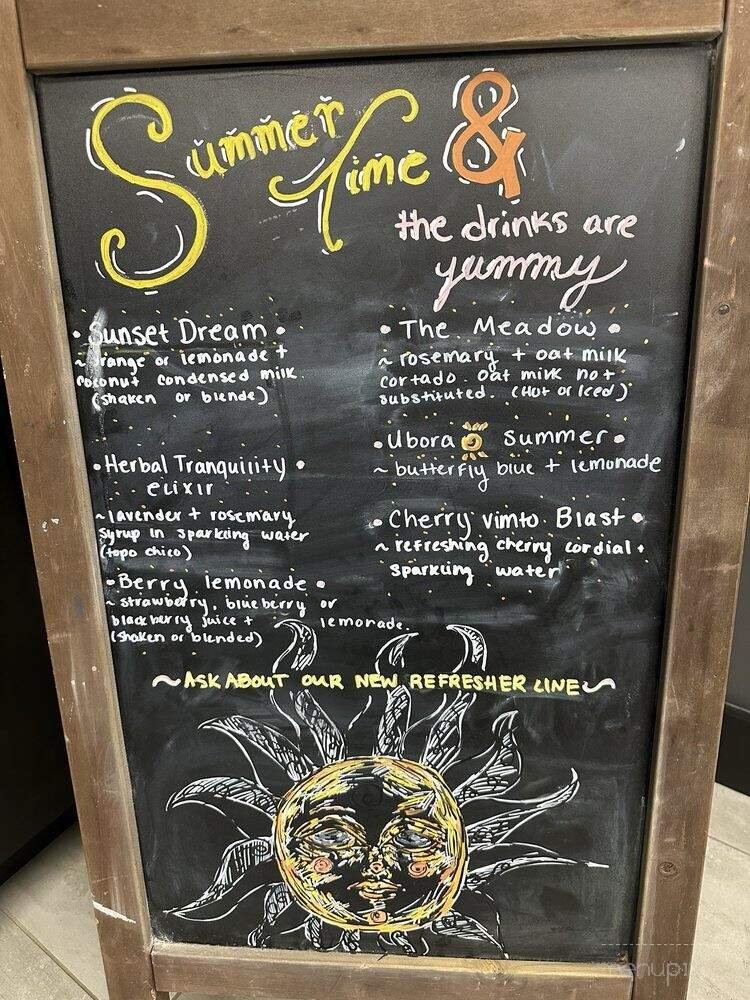 Summer Time &
the drinks are
yummy
• Sunset Dream •
~ orange or lemonade +
coconut condensed milk.
(shaken or blende)
• Herbal Tranquility •
elixir
~ lavender + rosemary
syrup in sparkling water
(topo chico)
• Berry lemonade •
~ strawberry, blueberry or
blackberry juice + lemonade.
(shaken or blended)
• The Meadow •
~ rosemary + oat milk
cortado. oat milk not
substituted. (Hot or Iced)
• Ubora summer •
~ butterfly blue + lemonade
• Cherry vimto Blast •
~ refreshing cherry cordial +
sparkling water
~ ASK ABOUT OUR NEW REFRESHER LINE ~